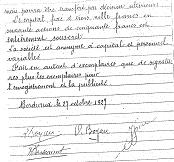 mais pourra être transféré par décision ultérieure
Le capital fixé à trois mille francs en
soixante actions de cinquante francs est
entièrement souscrit.
La société est anonyme à capital et personnel
variables
Fait en autant d'exemplaires que de signatai-
res plus les exemplaires pour
l'enregistrement et la publicité.
Bordeaux le 27 octobre 1927